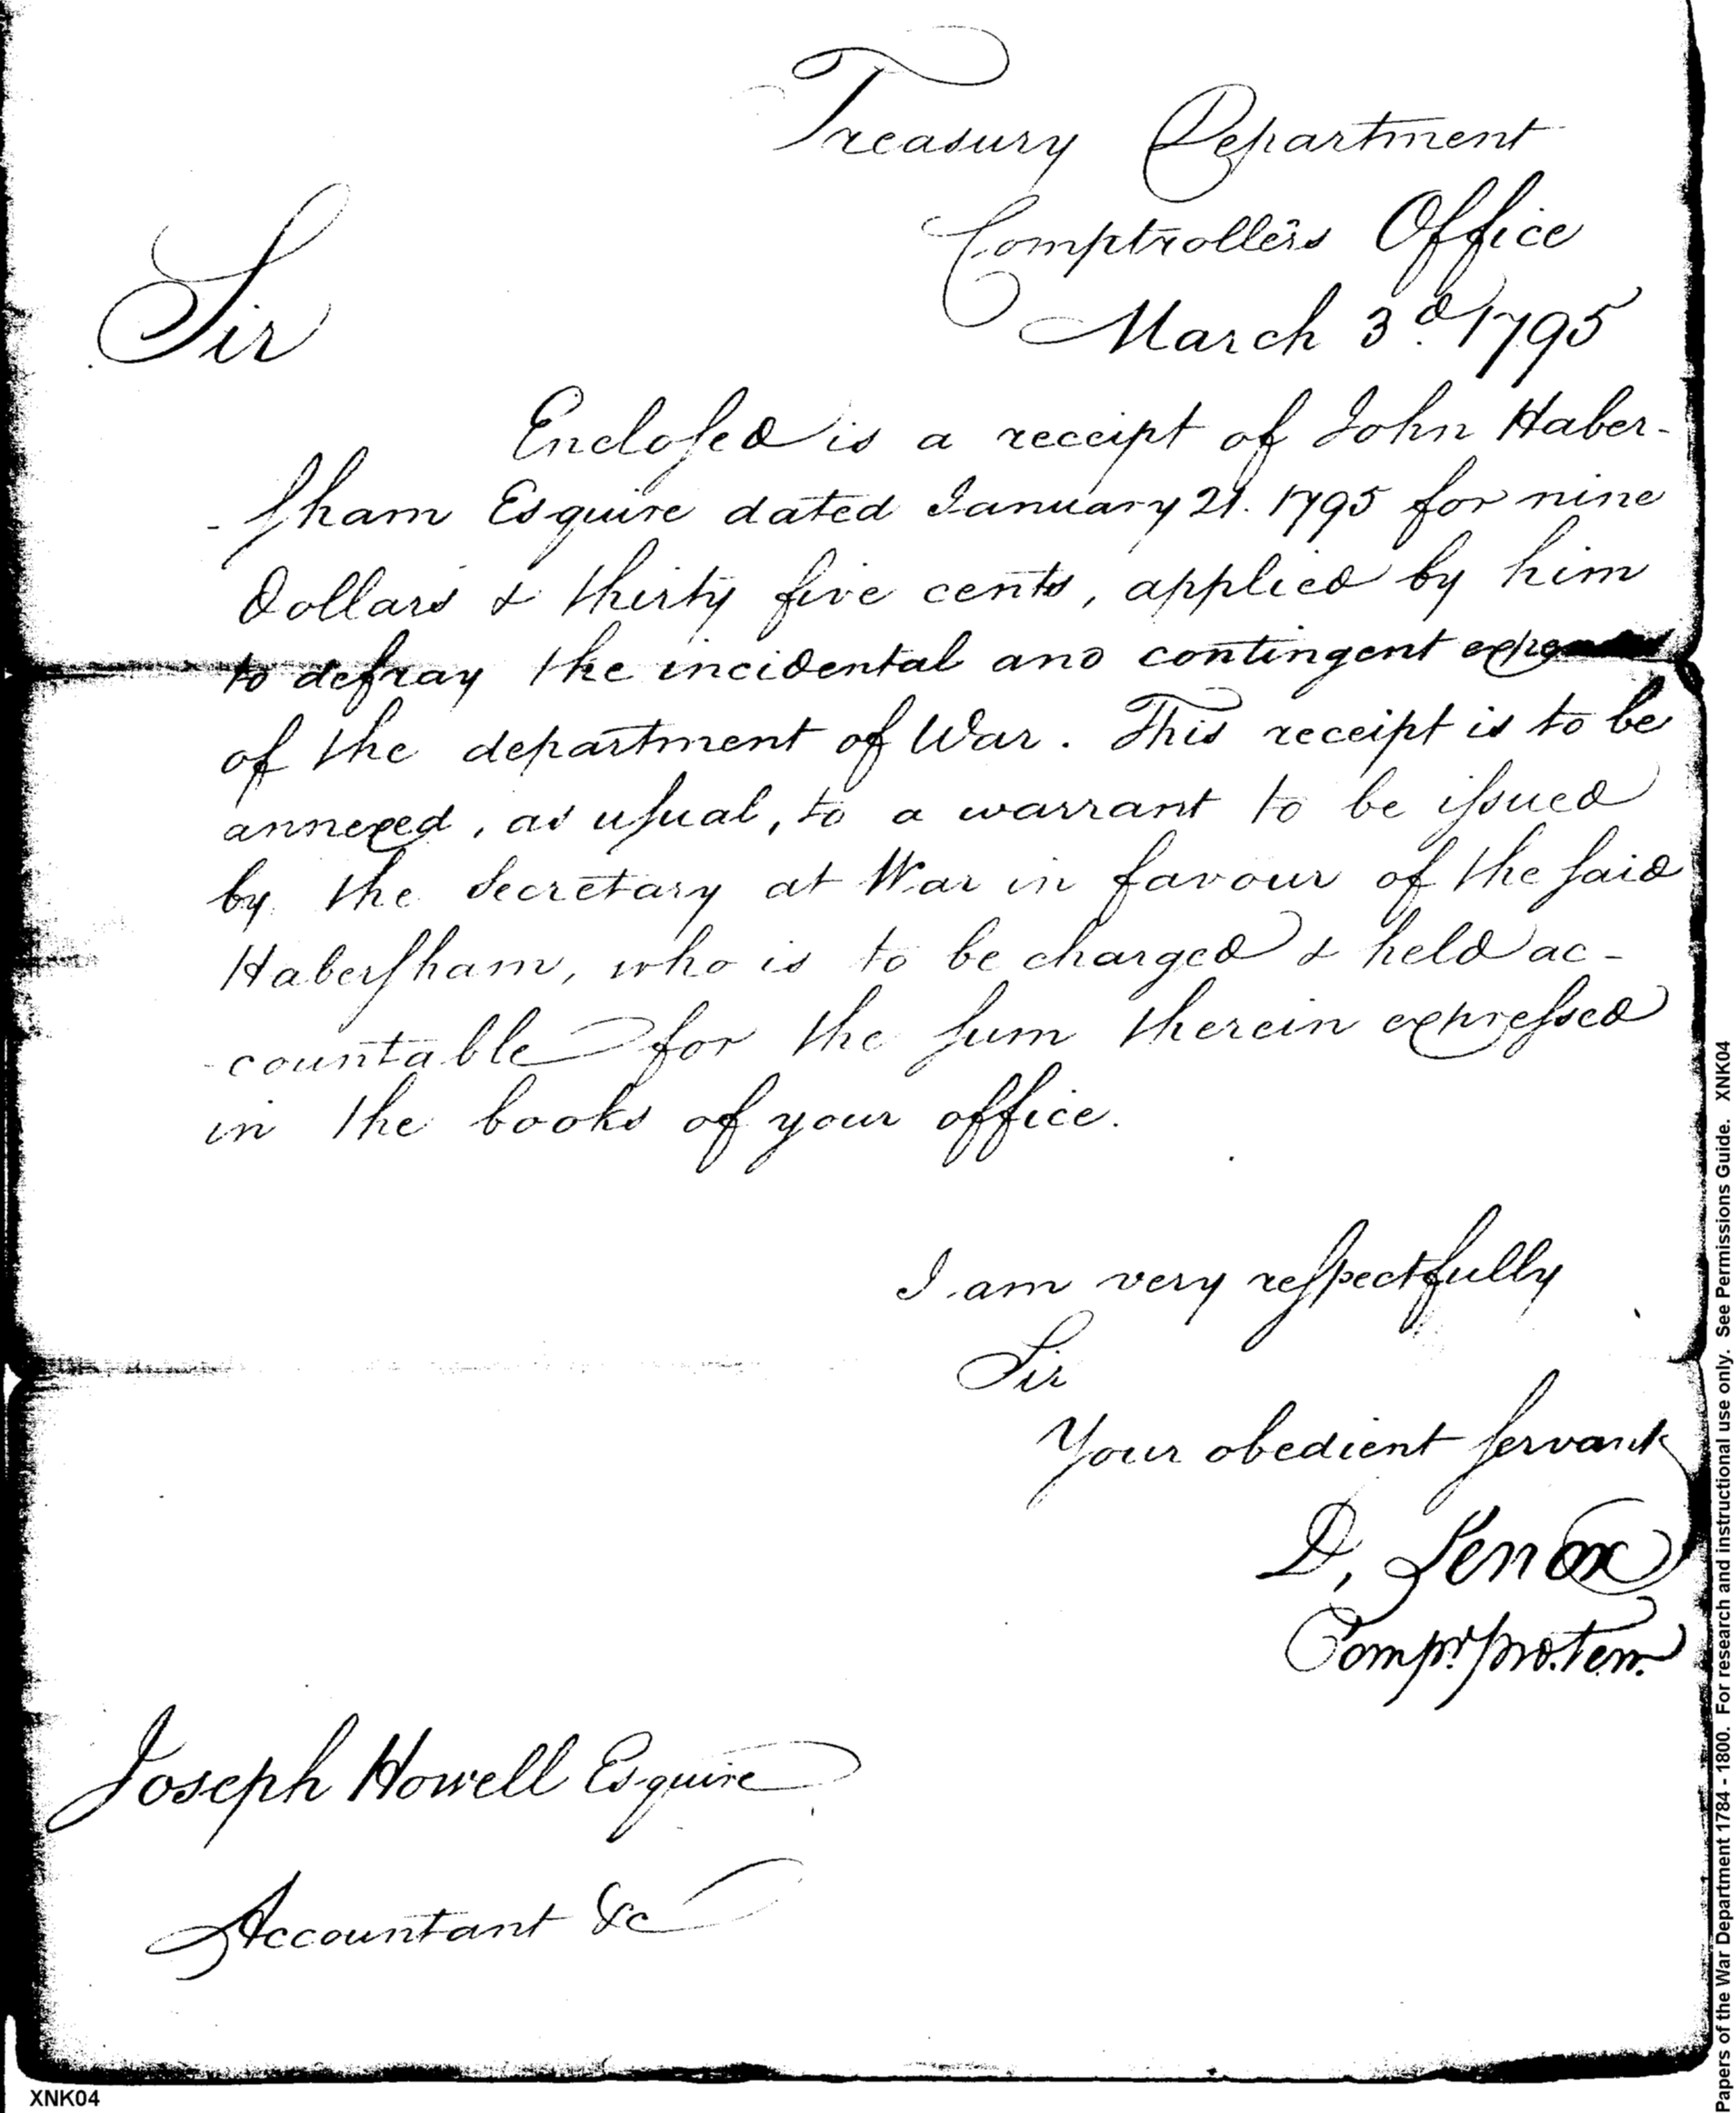 Treasury Department
Comptroller's Office
March 3d. 1795
Sir
Enclosed is a receipt of John Haber-
-sham Esquire dated January 21. 1795 for nine
Dollars & thirty five cents, applied by him
to defray the incidental and contingent
of the department of War. This receipt is to be
annexed, as usual, to a warrant to be issued
by the Secretary at War in favour of the said
Habersham, who is to be charged & held ac-
-countable for the sum therein expressed
in the books of your office.
I am very respectfully
Sir
Your obedient servant
D, Lenox
Compr. pro. tem.
Joseph Howell Esquire
Accountant &c
XNK04
Papers of the War Department 1784 - 1800. For research and instructional use only. See Permissions Guide. XNK04